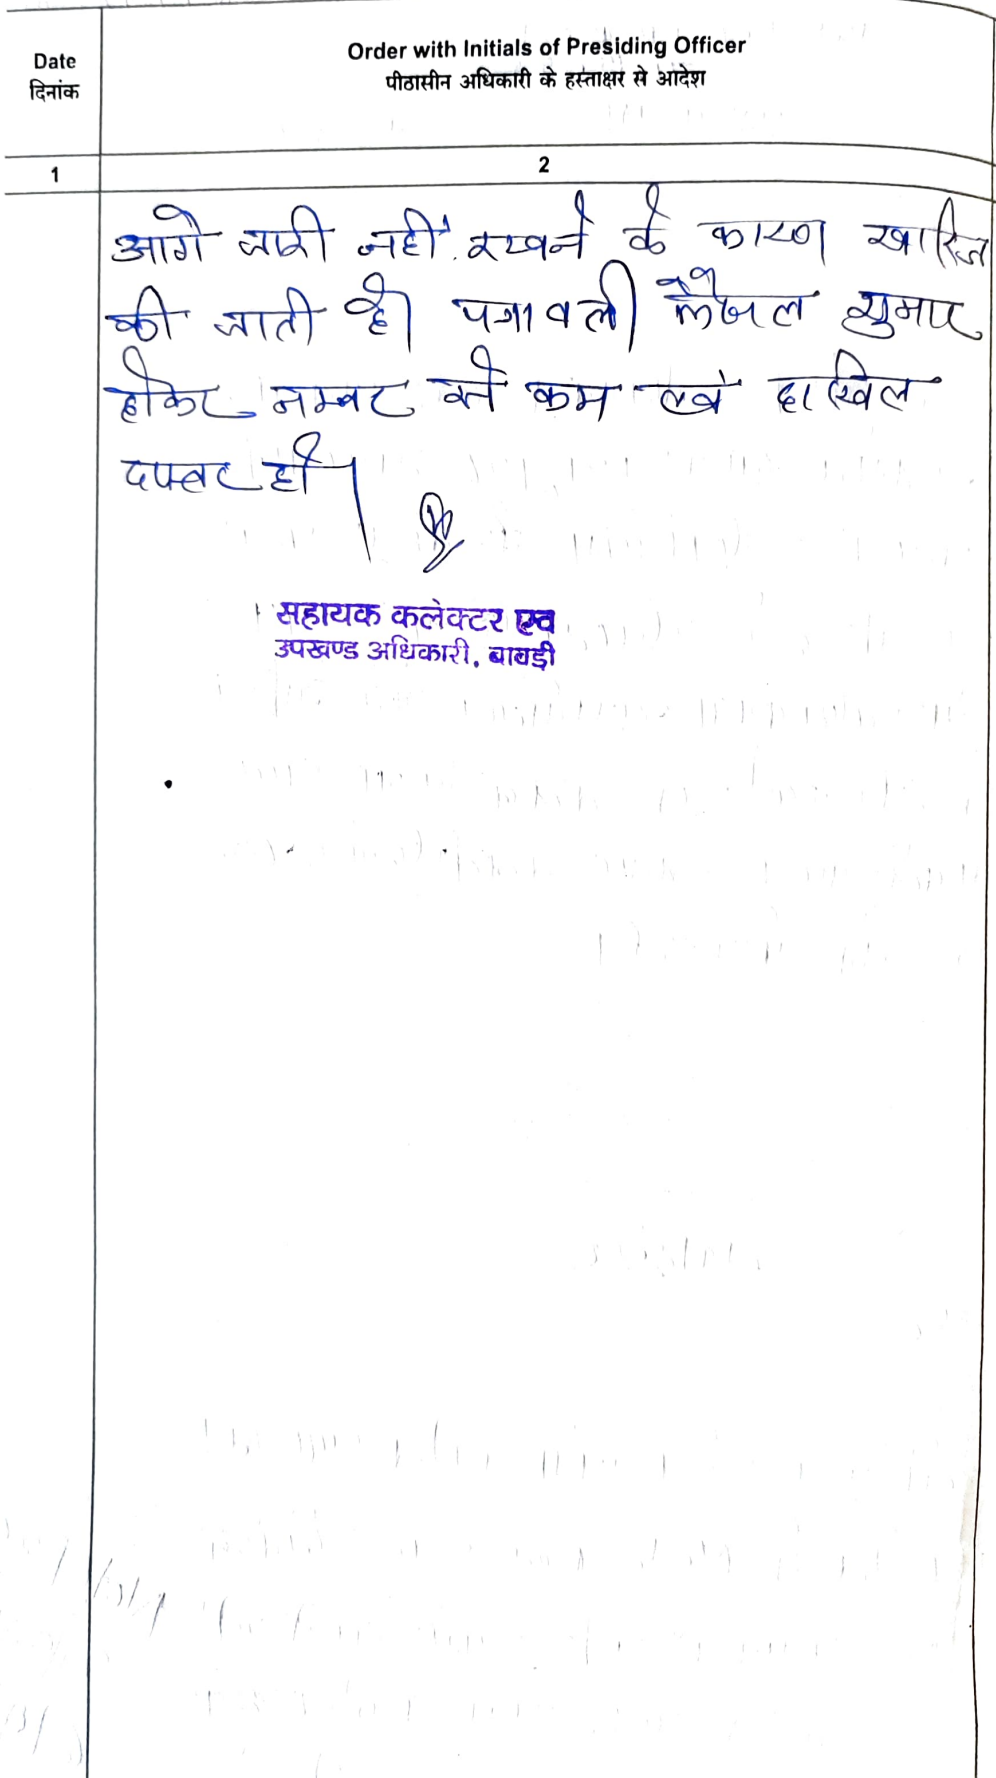 Date
दिनांक
Order with Initials of Presiding Officer
पीठासीन अधिकारी के हस्ताक्षर से आदेश
1
2
आगे जारी नहीं रखने के कारण खारिज
की जाती है। पत्रावली फैसल शुमार
होकर नम्बर से कम एवं दाखिल
दफ्तर हो।
सहायक कलेक्टर एवं
उपखण्ड अधिकारी, बावड़ी